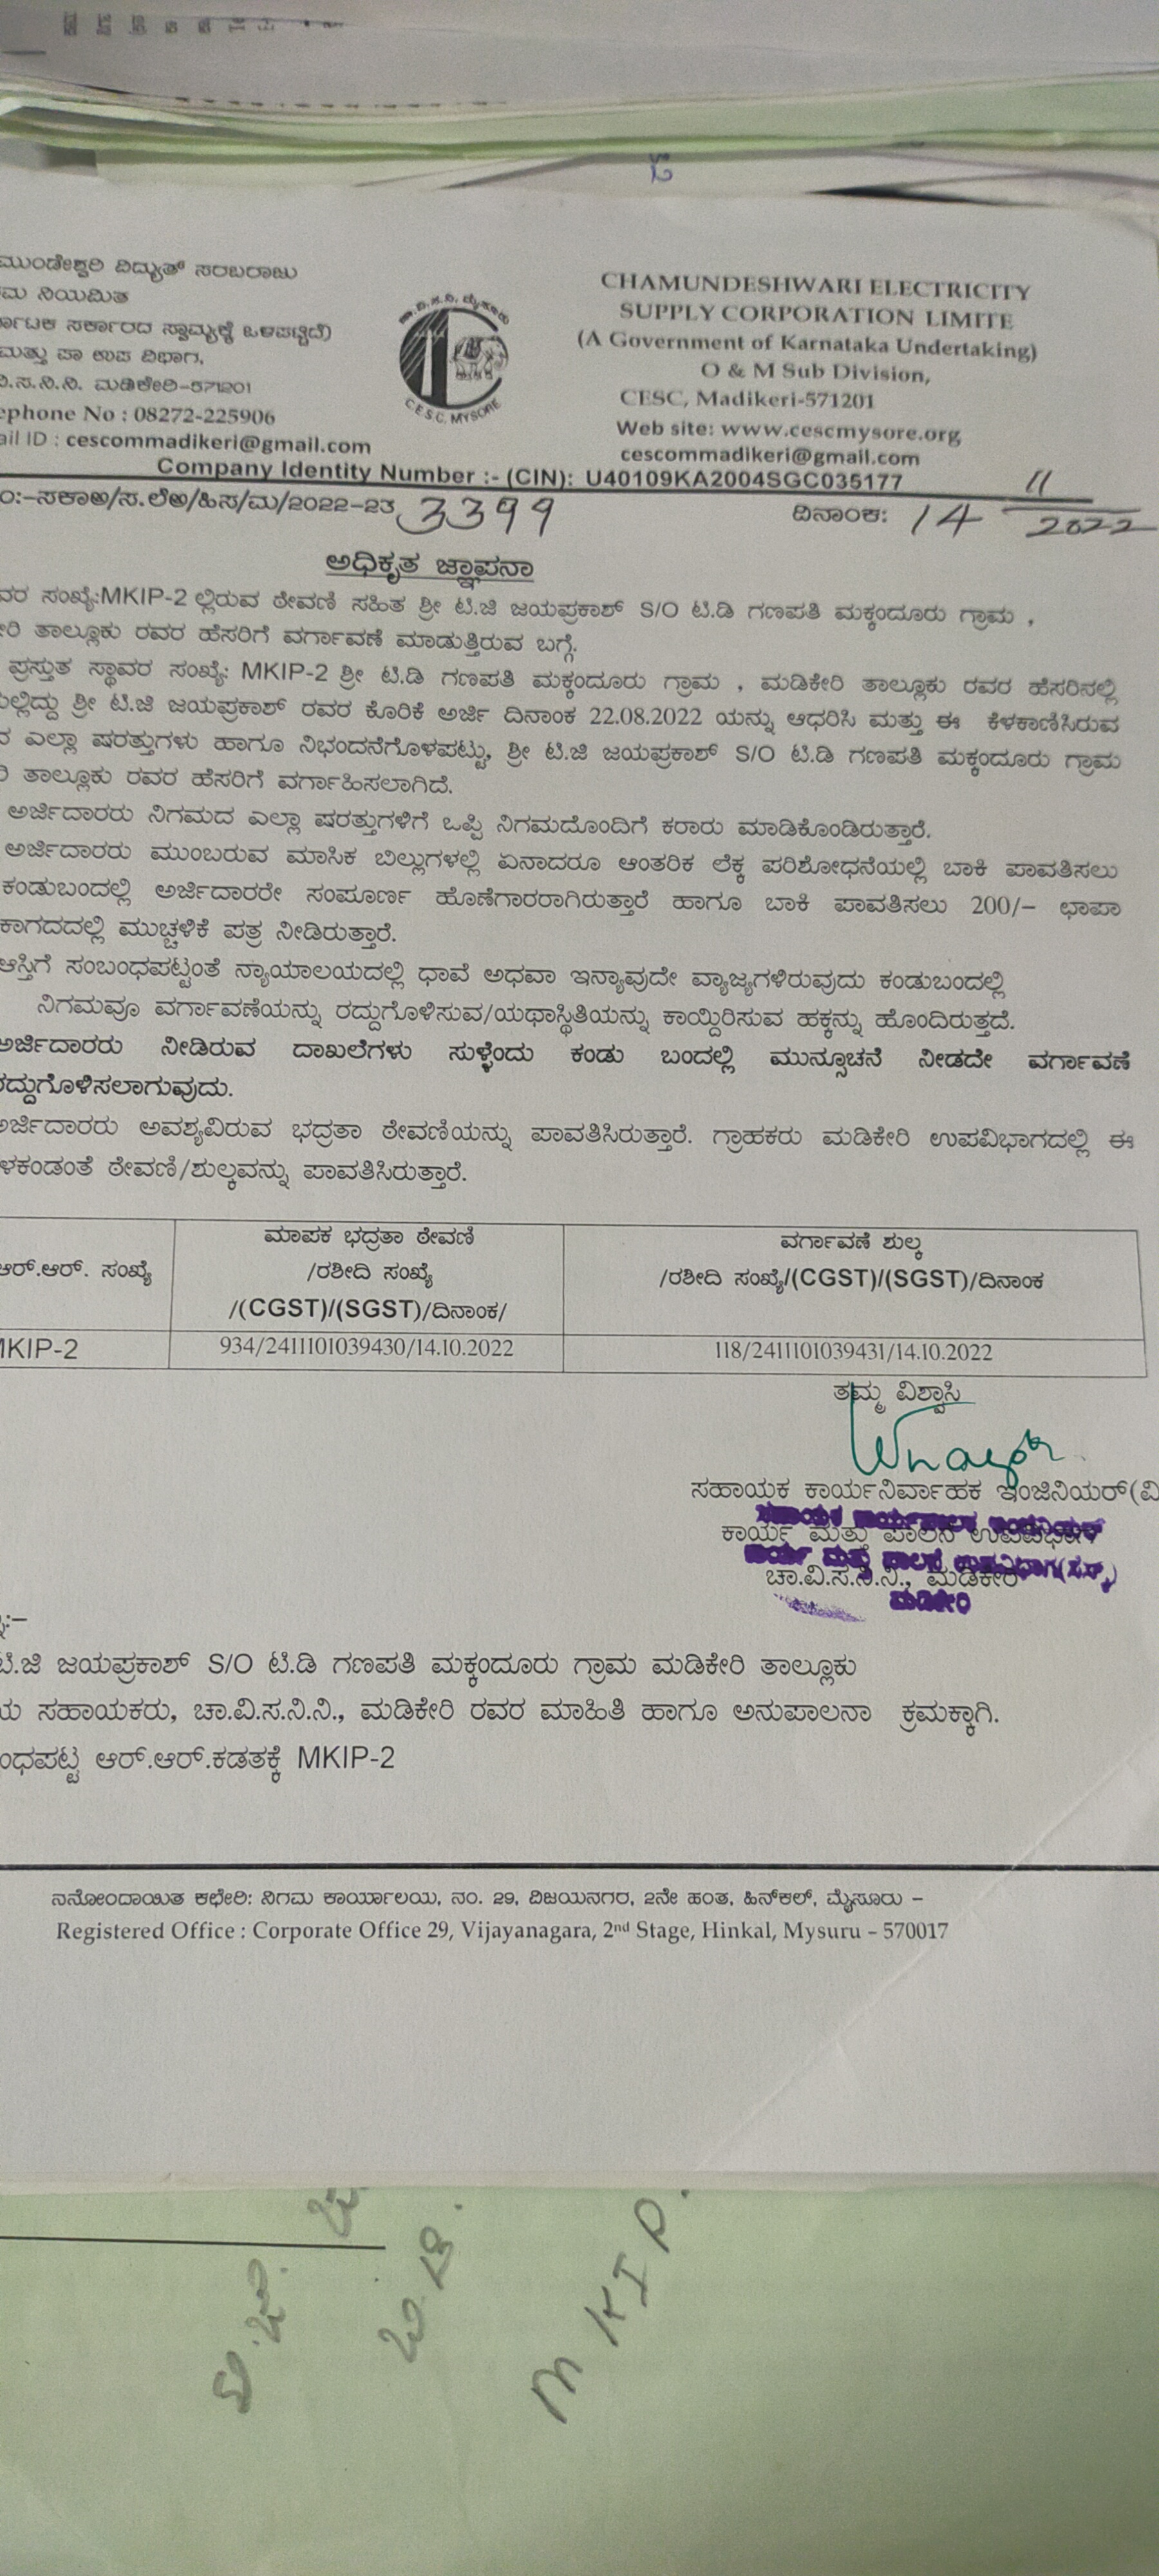 ಮುಂಡೇಶ್ವರಿ ವಿದ್ಯುತ್ ಸರಬರಾಜು
ಮ ನಿಯಮಿತ
ರ್ನಾಟಕ ಸರ್ಕಾರದ ಸ್ವಾಮ್ಯಕ್ಕೆ ಒಳಪಟ್ಟಿದೆ)
ಮತ್ತು ಪಾ ಉಪ ವಿಭಾಗ,
ವಿ.ಸ.ನಿ.ನಿ. ಮಡಿಕೇರಿ-571201
ephone No : 08272-225906
ail ID : cescommadikeri@gmail.com
ಚಾ.ವಿ.ಸ.ನಿ. ಮೈಸೂರು
C.E.S.C. MYSORE
CHAMUNDESHWARI ELECTRICITY
SUPPLY CORPORATION LIMITE
(A Government of Karnataka Undertaking)
O & M Sub Division,
CESC, Madikeri-571201
Web site: www.cescmysore.org
cescommadikeri@gmail.com
Company Identity Number :- (CIN): U40109KA2004SGC035177
ಂ:-ಸಕಾಅ/ಸ.ಲೆಅ/ಹಿಸ/ಮ/2022-23 3399 ದಿನಾಂಕ: 14 11 2022
ಅಧಿಕೃತ ಜ್ಞಾಪನಾ
ವರ ಸಂಖ್ಯೆ:MKIP-2 ಲ್ಲಿರುವ ಠೇವಣಿ ಸಹಿತ ಶ್ರೀ ಟಿ.ಜಿ ಜಯಪ್ರಕಾಶ್ S/O ಟಿ.ಡಿ ಗಣಪತಿ ಮಕ್ಕಂದೂರು ಗ್ರಾಮ ,
ೇರಿ ತಾಲ್ಲೂಕು ರವರ ಹೆಸರಿಗೆ ವರ್ಗಾವಣೆ ಮಾಡುತ್ತಿರುವ ಬಗ್ಗೆ.
ಪ್ರಸ್ತುತ ಸ್ಥಾವರ ಸಂಖ್ಯೆ: MKIP-2 ಶ್ರೀ ಟಿ.ಡಿ ಗಣಪತಿ ಮಕ್ಕಂದೂರು ಗ್ರಾಮ , ಮಡಿಕೇರಿ ತಾಲ್ಲೂಕು ರವರ ಹೆಸರಿನಲ್ಲಿ
ಲ್ಲಿದ್ದು ಶ್ರೀ ಟಿ.ಜಿ ಜಯಪ್ರಕಾಶ್ ರವರ ಕೊರಿಕೆ ಅರ್ಜಿ ದಿನಾಂಕ 22.08.2022 ಯನ್ನು ಆಧರಿಸಿ ಮತ್ತು ಈ ಕೆಳಕಾಣಿಸಿರುವ
ವ ಎಲ್ಲಾ ಷರತ್ತುಗಳು ಹಾಗೂ ನಿಭಂದನೆಗೊಳಪಟ್ಟು, ಶ್ರೀ ಟಿ.ಜಿ ಜಯಪ್ರಕಾಶ್ S/O ಟಿ.ಡಿ ಗಣಪತಿ ಮಕ್ಕಂದೂರು ಗ್ರಾಮ
ರಿ ತಾಲ್ಲೂಕು ರವರ ಹೆಸರಿಗೆ ವರ್ಗಾಹಿಸಲಾಗಿದೆ.
ಅರ್ಜಿದಾರರು ನಿಗಮದ ಎಲ್ಲಾ ಷರತ್ತುಗಳಿಗೆ ಒಪ್ಪಿ ನಿಗಮದೊಂದಿಗೆ ಕರಾರು ಮಾಡಿಕೊಂಡಿರುತ್ತಾರೆ.
ಅರ್ಜಿದಾರರು ಮುಂಬರುವ ಮಾಸಿಕ ಬಿಲ್ಲುಗಳಲ್ಲಿ ಏನಾದರೂ ಆಂತರಿಕ ಲೆಕ್ಕ ಪರಿಶೋಧನೆಯಲ್ಲಿ ಬಾಕಿ ಪಾವತಿಸಲು
ಕಂಡುಬಂದಲ್ಲಿ ಅರ್ಜಿದಾರರೇ ಸಂಪೂರ್ಣ ಹೊಣೆಗಾರರಾಗಿರುತ್ತಾರೆ ಹಾಗೂ ಬಾಕಿ ಪಾವತಿಸಲು 200/- ಛಾಪಾ
ಕಾಗದದಲ್ಲಿ ಮುಚ್ಚಳಿಕೆ ಪತ್ರ ನೀಡಿರುತ್ತಾರೆ.
ಆಸ್ತಿಗೆ ಸಂಬಂಧಪಟ್ಟಂತೆ ನ್ಯಾಯಾಲಯದಲ್ಲಿ ಧಾವೆ ಅಥವಾ ಇನ್ಯಾವುದೇ ವ್ಯಾಜ್ಯಗಳಿರುವುದು ಕಂಡುಬಂದಲ್ಲಿ
ನಿಗಮವೂ ವರ್ಗಾವಣೆಯನ್ನು ರದ್ದುಗೊಳಿಸುವ/ಯಥಾಸ್ಥಿತಿಯನ್ನು ಕಾಯ್ದಿರಿಸುವ ಹಕ್ಕನ್ನು ಹೊಂದಿರುತ್ತದೆ.
ಅರ್ಜಿದಾರರು ನೀಡಿರುವ ದಾಖಲೆಗಳು ಸುಳ್ಳೆಂದು ಕಂಡು ಬಂದಲ್ಲಿ ಮುನ್ಸೂಚನೆ ನೀಡದೇ ವರ್ಗಾವಣೆ
ರದ್ದುಗೊಳಿಸಲಾಗುವುದು.
ಅರ್ಜಿದಾರರು ಅವಶ್ಯವಿರುವ ಭದ್ರತಾ ಠೇವಣಿಯನ್ನು ಪಾವತಿಸಿರುತ್ತಾರೆ. ಗ್ರಾಹಕರು ಮಡಿಕೇರಿ ಉಪವಿಭಾಗದಲ್ಲಿ ಈ
ಳಕಂಡಂತೆ ಠೇವಣಿ/ಶುಲ್ಕವನ್ನು ಪಾವತಿಸಿರುತ್ತಾರೆ.
ಆರ್.ಆರ್. ಸಂಖ್ಯೆ
ಮಾಪಕ ಭದ್ರತಾ ಠೇವಣಿ
/ರಶೀದಿ ಸಂಖ್ಯೆ
/(CGST)/(SGST)/ದಿನಾಂಕ/
ವರ್ಗಾವಣೆ ಶುಲ್ಕ
/ರಶೀದಿ ಸಂಖ್ಯೆ/(CGST)/(SGST)/ದಿನಾಂಕ
MKIP-2 934/2411101039430/14.10.2022 118/2411101039431/14.10.2022
ತಮ್ಮ ವಿಶ್ವಾಸಿ
ಸಹಾಯಕ ಕಾರ್ಯನಿರ್ವಾಹಕ ಇಂಜಿನಿಯರ್(ವಿ
ಸಹಾಯಕ ಕಾರ್ಯಪಾಲಕ ಇಂಜಿನಿಯರ್
ಕಾರ್ಯ ಮತ್ತು ಪಾಲನೆ ಉಪವಿಭಾಗ
ಕಾರ್ಯ ಮತ್ತು ಪಾಲನೆ ಉಪವಿಭಾಗ
ಚಾ.ವಿ.ಸ.ನಿ.ನಿ., ಮಡಿಕೇರಿ
ಮಡಿಕೇರಿ
ಟಿ.ಜಿ ಜಯಪ್ರಕಾಶ್ S/O ಟಿ.ಡಿ ಗಣಪತಿ ಮಕ್ಕಂದೂರು ಗ್ರಾಮ ಮಡಿಕೇರಿ ತಾಲ್ಲೂಕು
ಯ ಸಹಾಯಕರು, ಚಾ.ವಿ.ಸ.ನಿ.ನಿ., ಮಡಿಕೇರಿ ರವರ ಮಾಹಿತಿ ಹಾಗೂ ಅನುಪಾಲನಾ ಕ್ರಮಕ್ಕಾಗಿ.
ಂಧಪಟ್ಟ ಆರ್.ಆರ್.ಕಡತಕ್ಕೆ MKIP-2
ನನೋಂದಾಯಿತ ಕಛೇರಿ: ನಿಗಮ ಕಾರ್ಯಾಲಯ, ನಂ. 29, ವಿಜಯನಗರ, 2ನೇ ಹಂತ, ಹಿನ್‌ಕಲ್, ಮೈಸೂರು –
Registered Office : Corporate Office 29, Vijayanagara, 2nd Stage, Hinkal, Mysuru – 570017
MKIP.